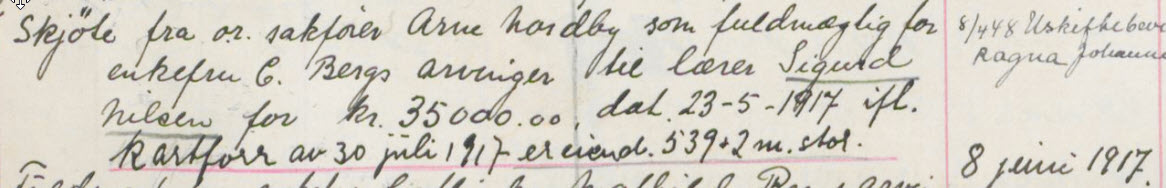 Skjöte fra o.r. sakförer Arne Nordby som fuldmægtig for
enkefru C. Bergs arvinger til lærer Sigurd
Nilsen for kr. 35000.00, dat. 23-5-1917 ifl.
kartforr av 30 juli 1917 er eiend. 539+2 m. stor.
8/448 Uskiftebev
Ragna Johanne
8 juni 1917.